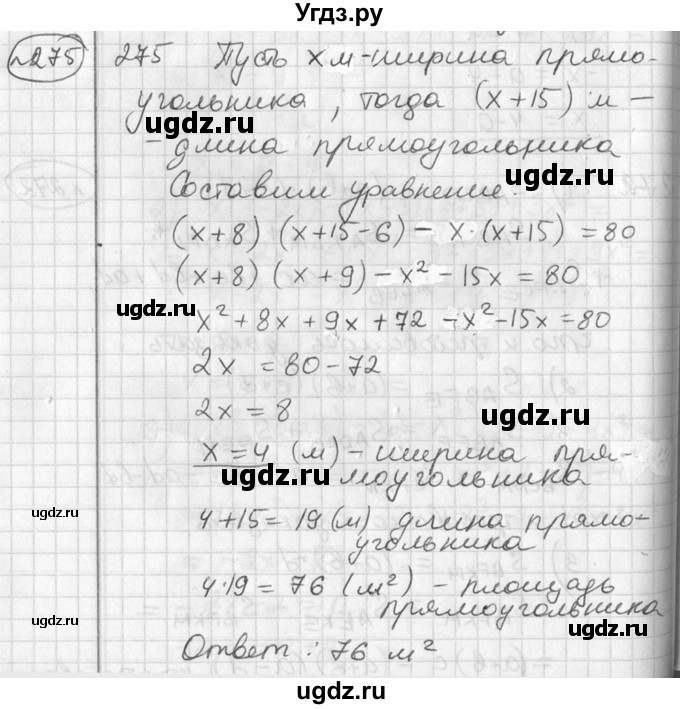 Угдз.ру
№275 275 Пусть x м - ширина прямо-
угольника, тогда (x+15) м -
ugdz.ru ugdz.ru
- длина прямоугольника
Составим уравнение:
ugdz.ru
(x+8) (x+15-6) - x·(x+15) = 80
(x+8) (x+9) - x² - 15x = 80
ugdz.ru
x² + 8x + 9x + 72 - x² - 15x = 80
2x = 80 - 72
2x = 8
ugdz.ru
x = 4 (м) - ширина пря-
ugdz.ru моугольника
ugdz.ru
4+15 = 19 (м) длина прямо-
угольника
4·19 = 76 (м²) - площадь
ugdz.ru
прямоугольника
Ответ: 76 м²
ugdz.ru
ugdz.ru